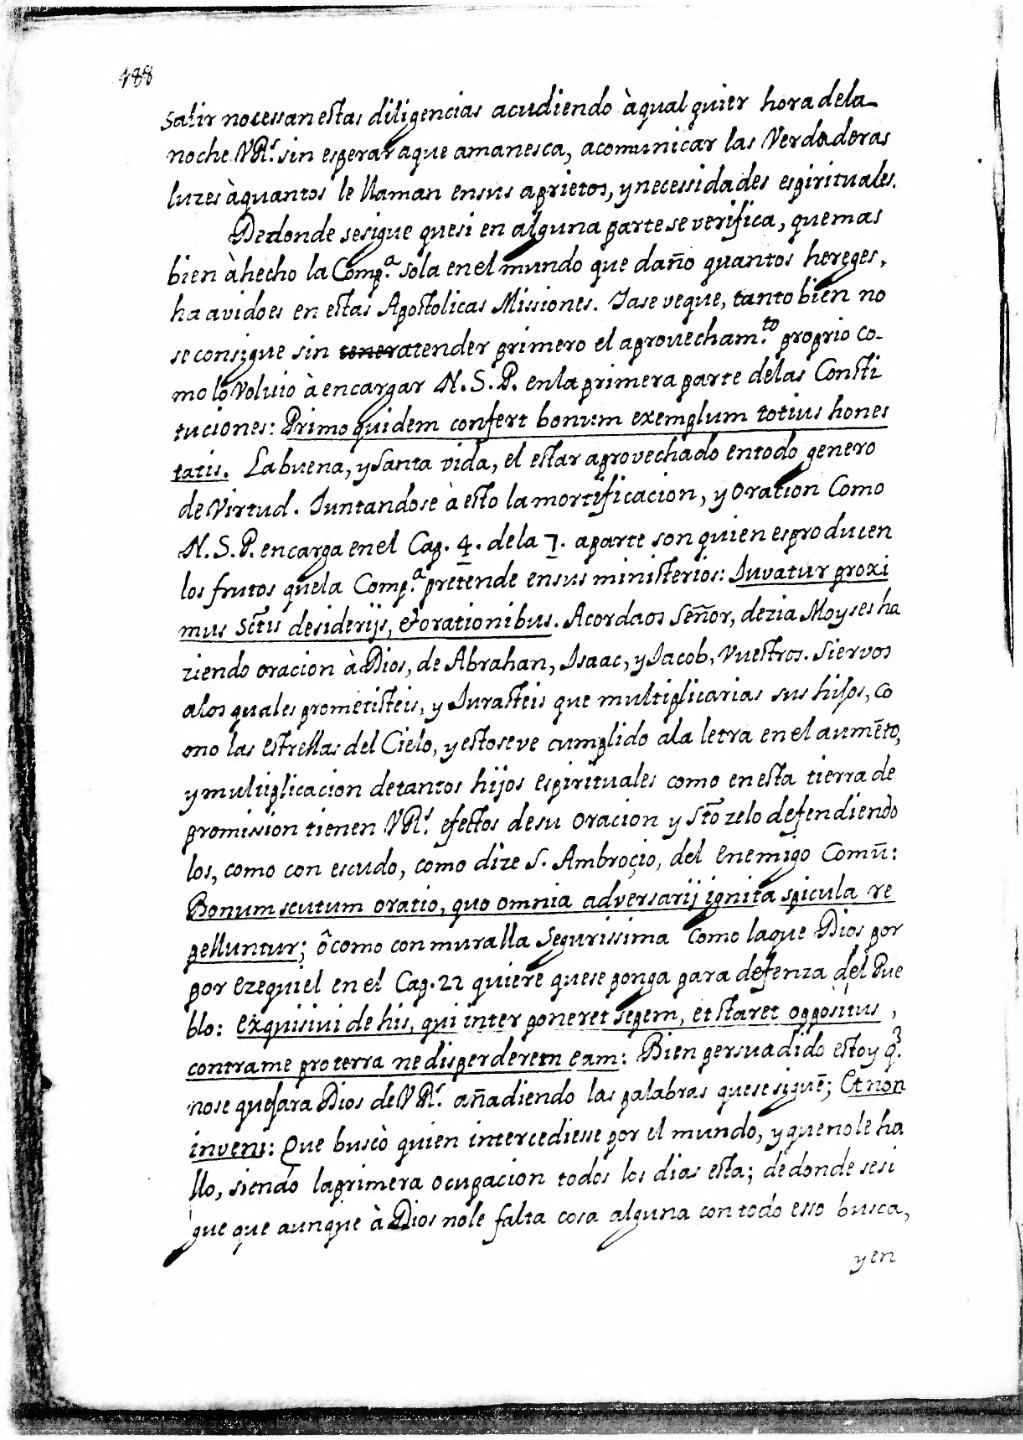 488
salir no cessan estas diligencias acudiendo à qual quier hora dela
noche VRs. sin esperar aque amanesca, acomunicar las Verdaderas
luzes àquantos le llaman ensus aprietos, y necessidades espirituales.
Dedonde sesigue quesi en alguna parte se verifica, que mas
bien à hecho la Comp.a sola en el mundo que daño quantos hereges,
ha avido es en estas Apostolicas Missiones. Iase ve que, tanto bien no
se consigue sin tener atender primero el aprovecham.to proprio co-
mo lo Volvio à encargar N. S. P. en la primera parte delas Consti
tuciones: Primo quidem confert bonum exemplum totius hones
tatis. La buena, y Santa vida, el estar aprovechado entodo genero
de Virtud. Juntandose à esto la mortificacion, y Oration Como
N. S. P. encarga en el Cap. 4. dela 7. aparte son quien esproducen
los frutos quela Comp.a pretende ensus ministerios: Iuvatur proxi
mus Sctis desiderijs, & orationibus. Acordaos Señor, dezia Moyses ha
ziendo oracion à Dios, de Abrahan, Isaac, y Jacob, Vuestros. Siervos
alos quales prometisteis, y Jurasteis que multiplicarias sus hijos, co
omo las estrellas del Cielo, y esto se ve cumplido ala letra en el aumēto,
y multiplicacion detantos hijos espirituales como en esta tierra de
promission tienen VRs. efectos desu oracion y Sto zelo defendiendo
los, como con escudo, como dize S. Ambrocio, del Enemigo Comū:
Bonum scutum oratio, quo omnia adversarij ignita spicula re
pelluntur; ô como con muralla Segurissima como la que Dios por
por Ezequiel en el Cap. 22 quiere quese ponga para defenza del Pue
blo: exquisivi de his, qui inter poneret sepem, et staret oppositus,
contra me pro terra ne disperderem eam: Bien persuadido estoy q.
nose quejara Dios de VRs. añadiendo las palabras quese siguē; Et non
inveni: Que buscò quien intercediesse por el mundo, y que nole ha
llo, siendo laprimera ocupacion todos los dias esta; dedonde sesi
gue que aunque à Dios nole falta cosa alguna con todo esso busca,
y en